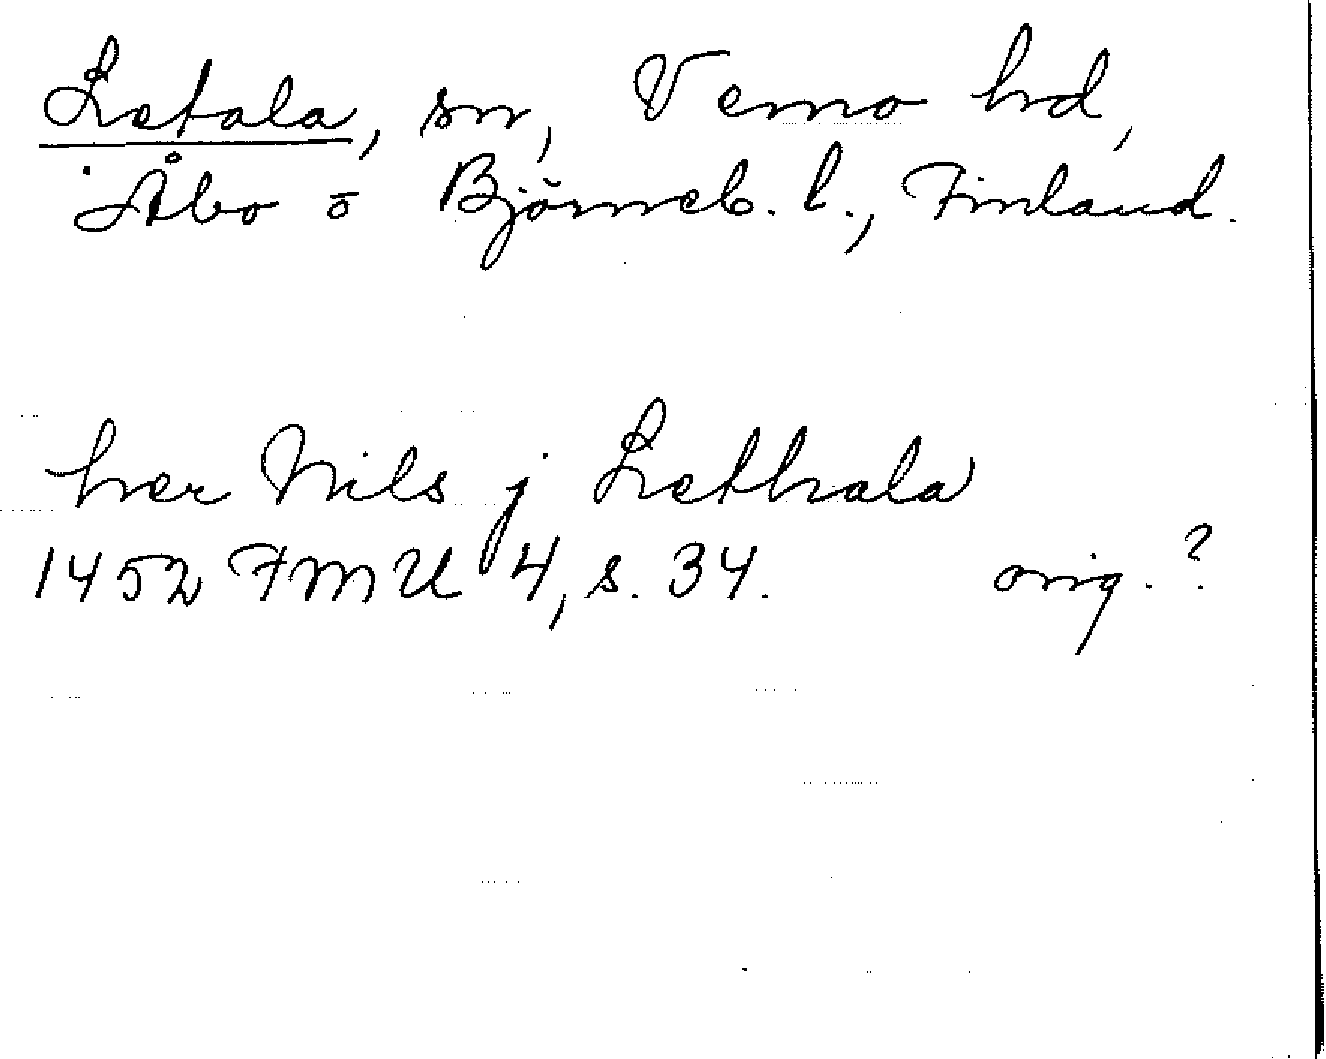 Letala, sn, Vemo hrd,
Åbo o Björneb. l., Finland.
her Nils j Lethala
1452 FMU 4, s. 34. orig. ?